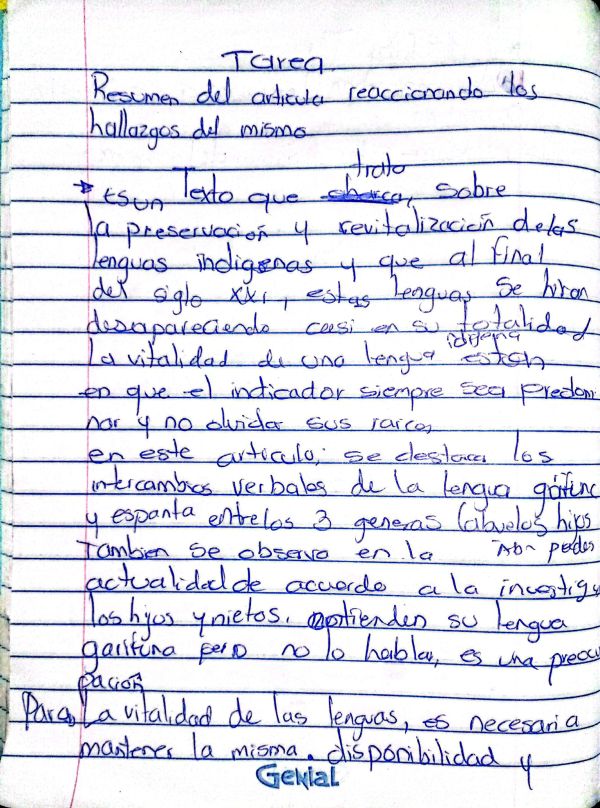 Tarea
Resumen del articulo reaccionando los
hallazgos del mismo
trato
Es un Texto que abarca, sobre
la preservación y revitalización de las
lenguas indigenas y que al final
del siglo XXI, estas lenguas se hiran
desapareciendo casi en su totalidad
indigena
La vitalidad de una lengua están
en que el indicador siempre sea predomi
nar y no olvidar sus raices
en este articulo, se destaca los
intercambios verbales de la lengua garifuna
y espanta entre los 3 generas (abuelos hijos
Tambien se observa en la padres
actualidad de acuerdo a la investiga
los hijos y nietos. entienden su lengua
garifuna pero no lo hablan, es una preocu
pación
Para, La vitalidad de las lenguas, es necesaria
mantener la misma. disponibilidad y
Genial